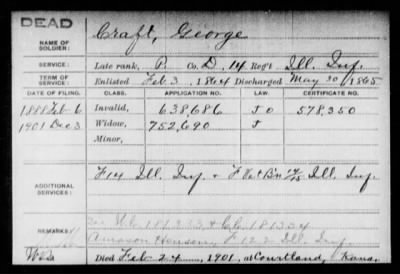 DEAD
NAME OF SOLDIER: Craft, George
SERVICE: Late rank, P. Co. D, 14 Reg't Ill. Inf.
TERM OF SERVICE: Enlisted Feb 3, 1864 Discharged May 30, 1865
DATE OF FILING. CLASS. APPLICATION NO. LAW. CERTIFICATE NO.
1888 Feb 6 Invalid, 638,686 J 0 578,350
1901 Dec 3 Widow, 752,690 J
Minor,
ADDITIONAL SERVICES: F 14 Ill. Inf. + F Vet Bn 14/15 Ill. Inf.
REMARKS:
Henson, F 122 Ill. Inf.
Died Feb 24, 1901, at Courtland, Kans.